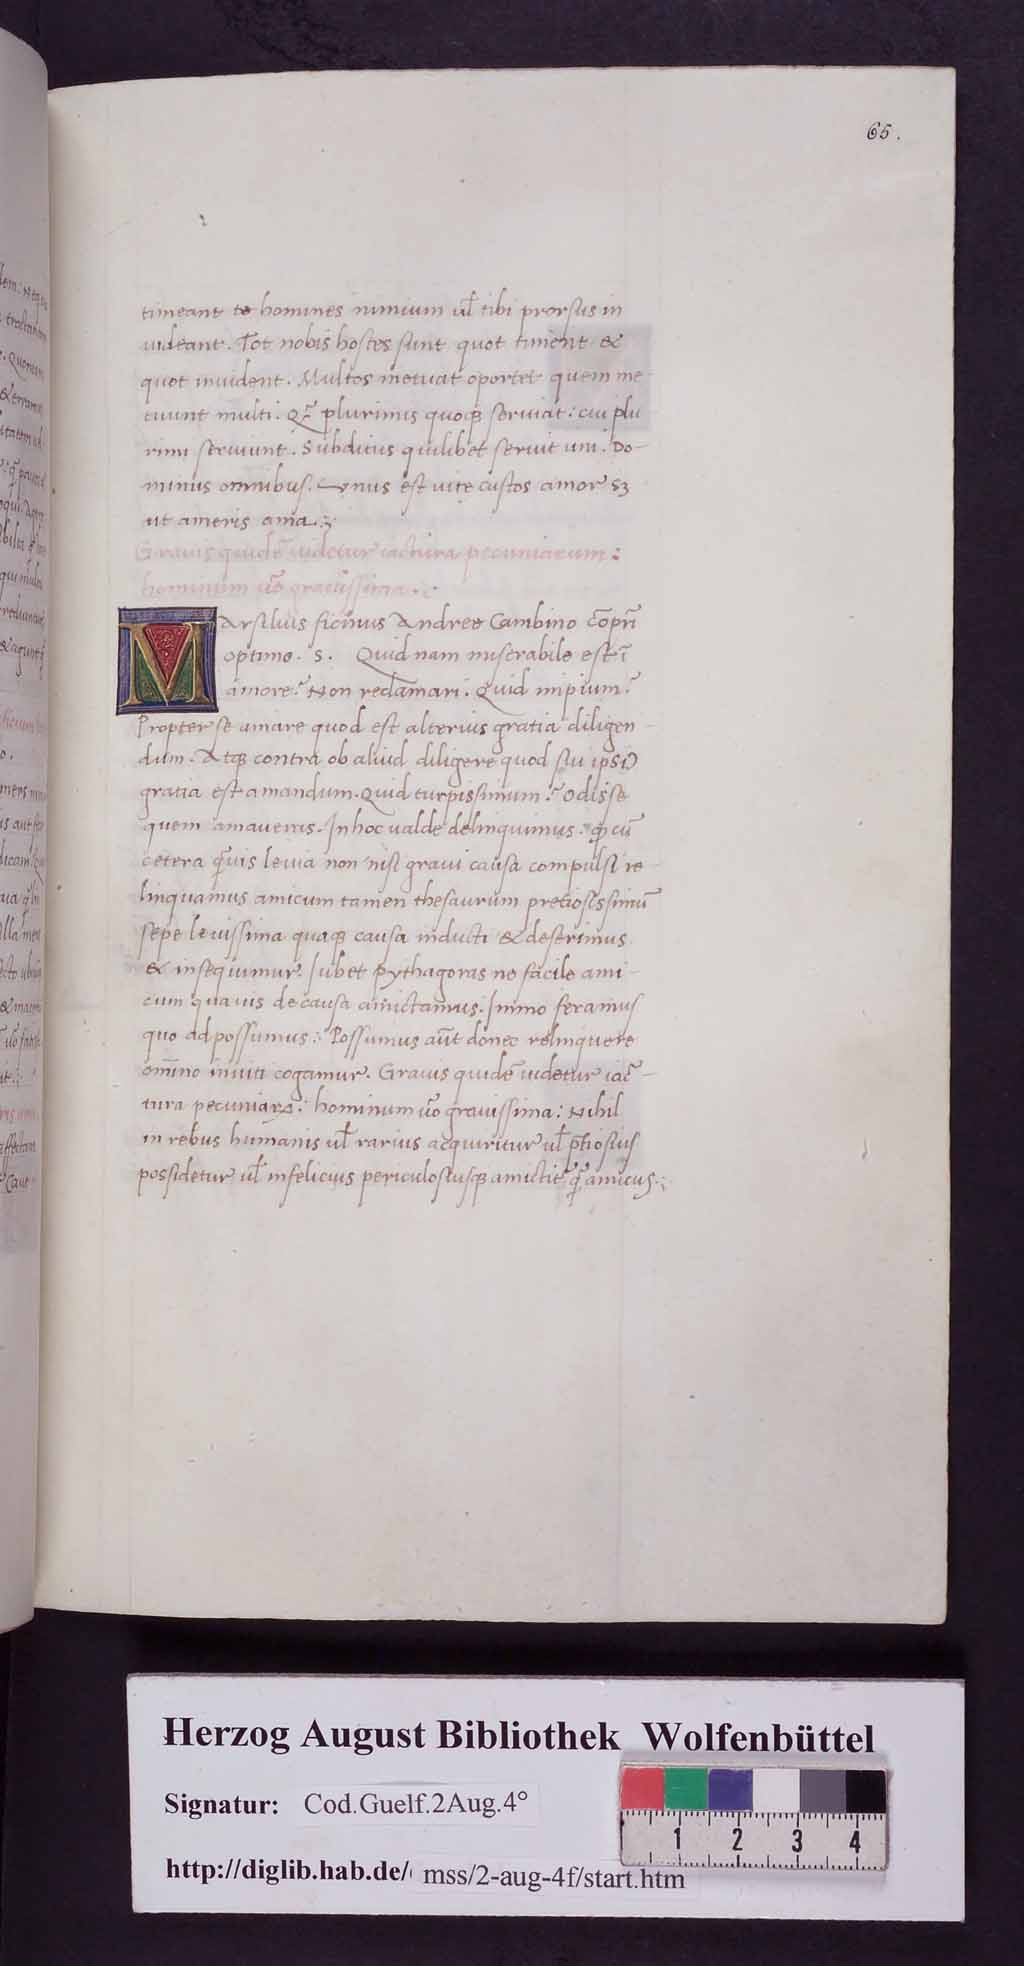 65.
timeant te homines nimium ul̄ tibi prorsus in
uideant. Tot nobis hostes sunt quot timent &
quot inuident. Multos metuat oportet quem me
tuunt multi. plurimis quoqꝫ seruiat: cui plu
rimi seruiunt. Subditus quilibet seruit uni. Do-
minus omnibus. Vnus est uite custos amor sꝫ
ut ameris ama.
Grauis quidē uidetur iactura pecuniarum:
hominum uō grauissima.
MArsilius ficinus Andree Cambino cōpr̄i
optimo. S. Quid nam miserabile est ī
amore? Non redamari. Quid impium?
Propter se amare quod est alterius gratia diligen
dum. Atqꝫ contra ob aliud diligere quod sui ipsiꝰ
gratia est amandum. Quid turpissimum? Odisse
quem amaueris. In hoc ualde delinquimus. cū
cetera q̄uis leuia non nisi graui causa compulsi re-
linquamus amicum tamen thesaurum pretiosissimū
sepe leuissima quaqꝫ causa inducti & deserimus
& insequimur. Iubet pythagoras ne facile ami-
cum quauis de causa amictamus. Immo feramus
quo ad possumus: Possumus aūt donec relinquere
om̄ino inuiti cogamur. Grauis quidē uidetur iac̄-
tura pecuniaꝝ: hominum uō grauissima: Nihil
in rebus humanis ul̄ rarius acquiritur ul̄ p̄tiosius
possidetur ul̄ infelicius periculosiusqꝫ amictit̄ q̄ amicus.
Herzog August Bibliothek Wolfenbüttel
Signatur: Cod.Guelf.2Aug.4°
http://diglib.hab.de/ mss/2-aug-4f/start.htm
1 2 3 4